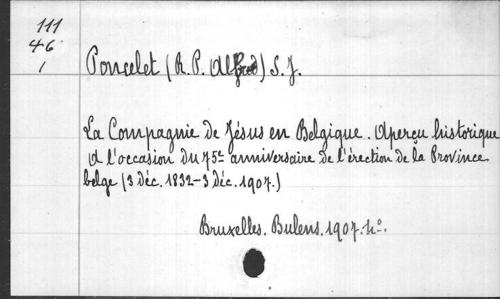 111
46
1
Poncelet (R. P. Alfred) S. J.
La Compagnie de Jésus en Belgique. Aperçu historique
à l'occasion du 75e anniversaire de l'érection de la Province
belge (3 déc. 1832-3 déc. 1907.)
Bruxelles. Bulens. 1907. 4o.